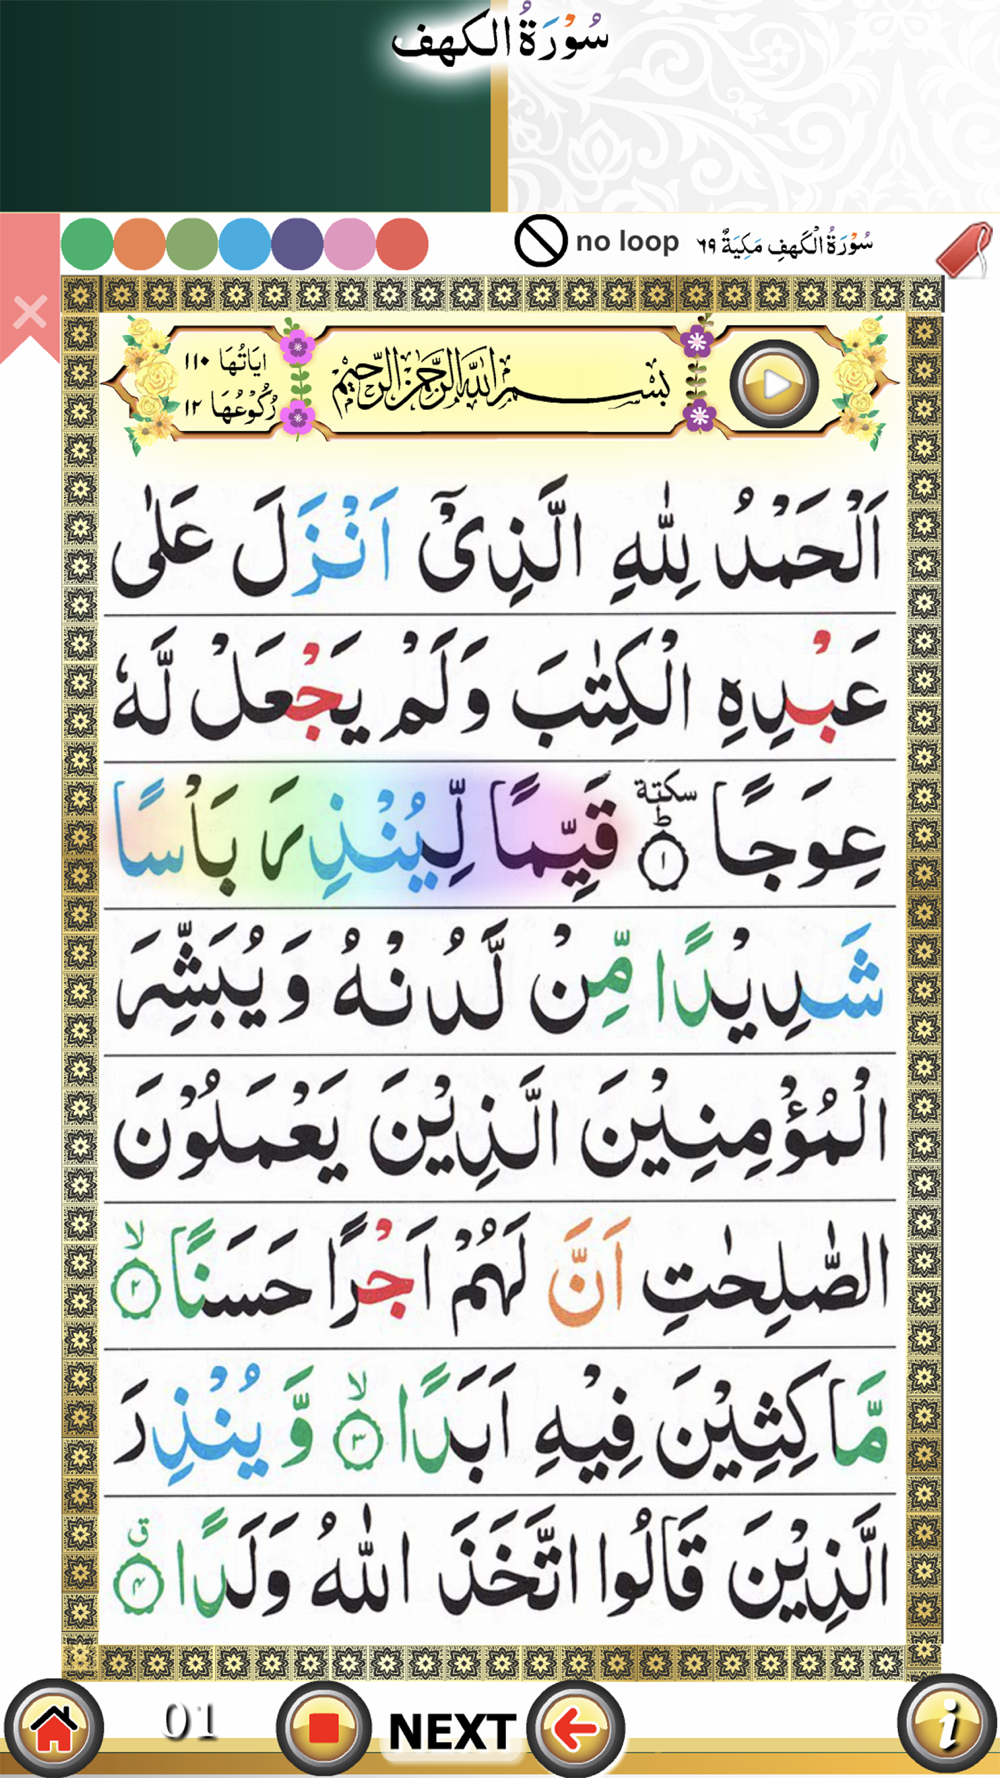 سُوْرَةُ الكهف
no loop
سُوْرَةُ الْكَهْفِ مَكِيَةٌ ٦٩
اٰيَاتُهَا ١١٠
رُكُوْعُهَا ١٢
بِسْمِ اللهِ الرَّحْمٰنِ الرَّحِيْمِ
اَلْحَمْدُ لِلّٰهِ الَّذِیْۤ اَنْزَلَ عَلٰی
عَبْدِهِ الْكِتٰبَ وَلَمْ يَجْعَلْ لَّهٗ
عِوَجًا ؕ سكتة ١ قَيِّمًا لِّيُنْذِرَ بَاْسًا
شَدِيْدًا مِّنْ لَّدُنْهُ وَيُبَشِّرَ
الْمُؤْمِنِيْنَ الَّذِيْنَ يَعْمَلُوْنَ
الصّٰلِحٰتِ اَنَّ لَهُمْ اَجْرًا حَسَنًا ۙ ٢
مَّاكِثِيْنَ فِيْهِ اَبَدًا ۙ ٣ وَّيُنْذِرَ
الَّذِيْنَ قَالُوا اتَّخَذَ اللّٰهُ وَلَدًا ق ٤
01
NEXT
i